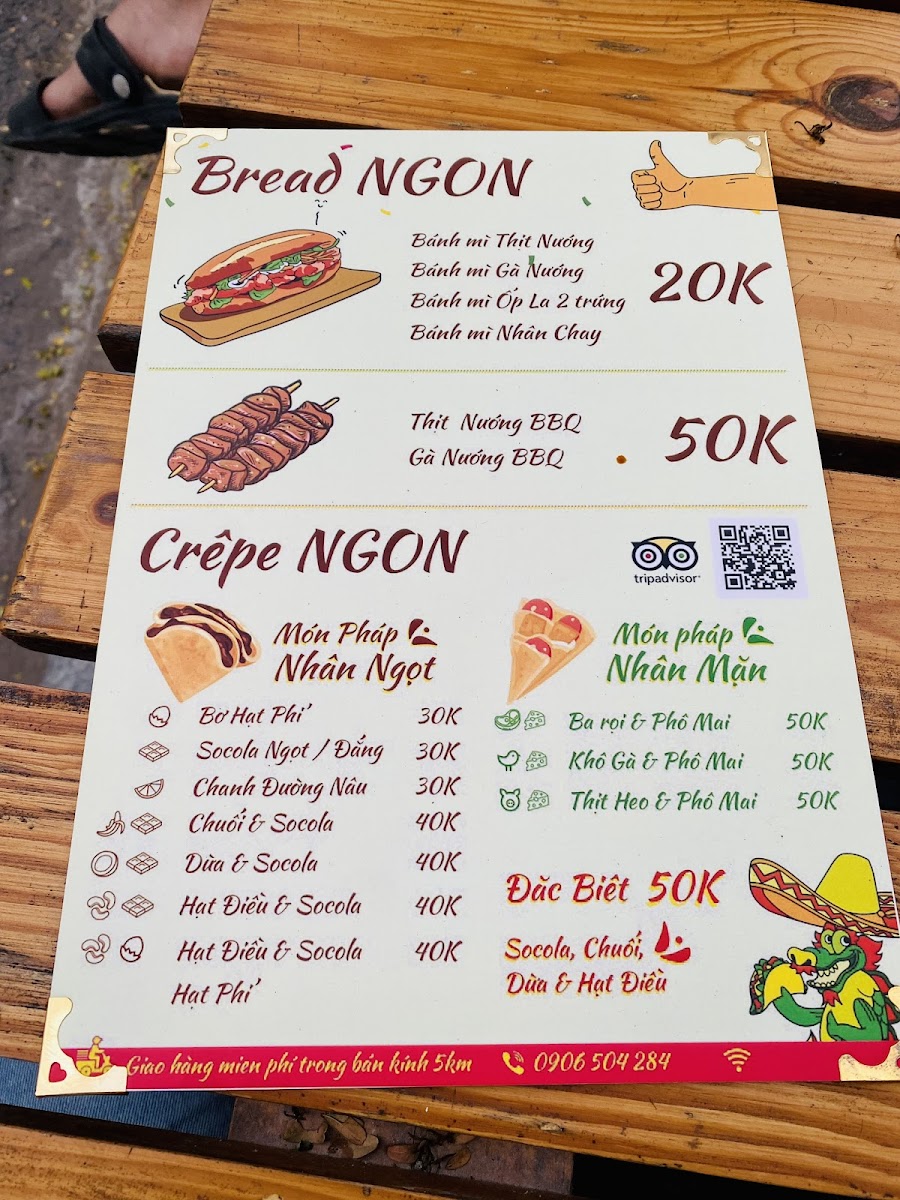 Bread NGON
Bánh mì Thịt Nướng
Bánh mì Gà Nướng
Bánh mì Ốp La 2 trứng
Bánh mì Nhân Chay
20K
Thịt Nướng BBQ
Gà Nướng BBQ
50K
Crêpe NGON
tripadvisor
Món Pháp
Nhân Ngọt
Bơ Hạt Phỉ 30K
Socola Ngọt / Đắng 30K
Chanh Đường Nâu 30K
Chuối & Socola 40K
Dừa & Socola 40K
Hạt Điều & Socola 40K
Hạt Điều & Socola 40K
Hạt Phỉ
Món pháp
Nhân Mặn
Ba rọi & Phô Mai 50K
Khô Gà & Phô Mai 50K
Thịt Heo & Phô Mai 50K
Đăc Biêt 50K
Socola, Chuối,
Dừa & Hạt Điều
Giao hàng mien phí trong bán kính 5km 0906 504 284